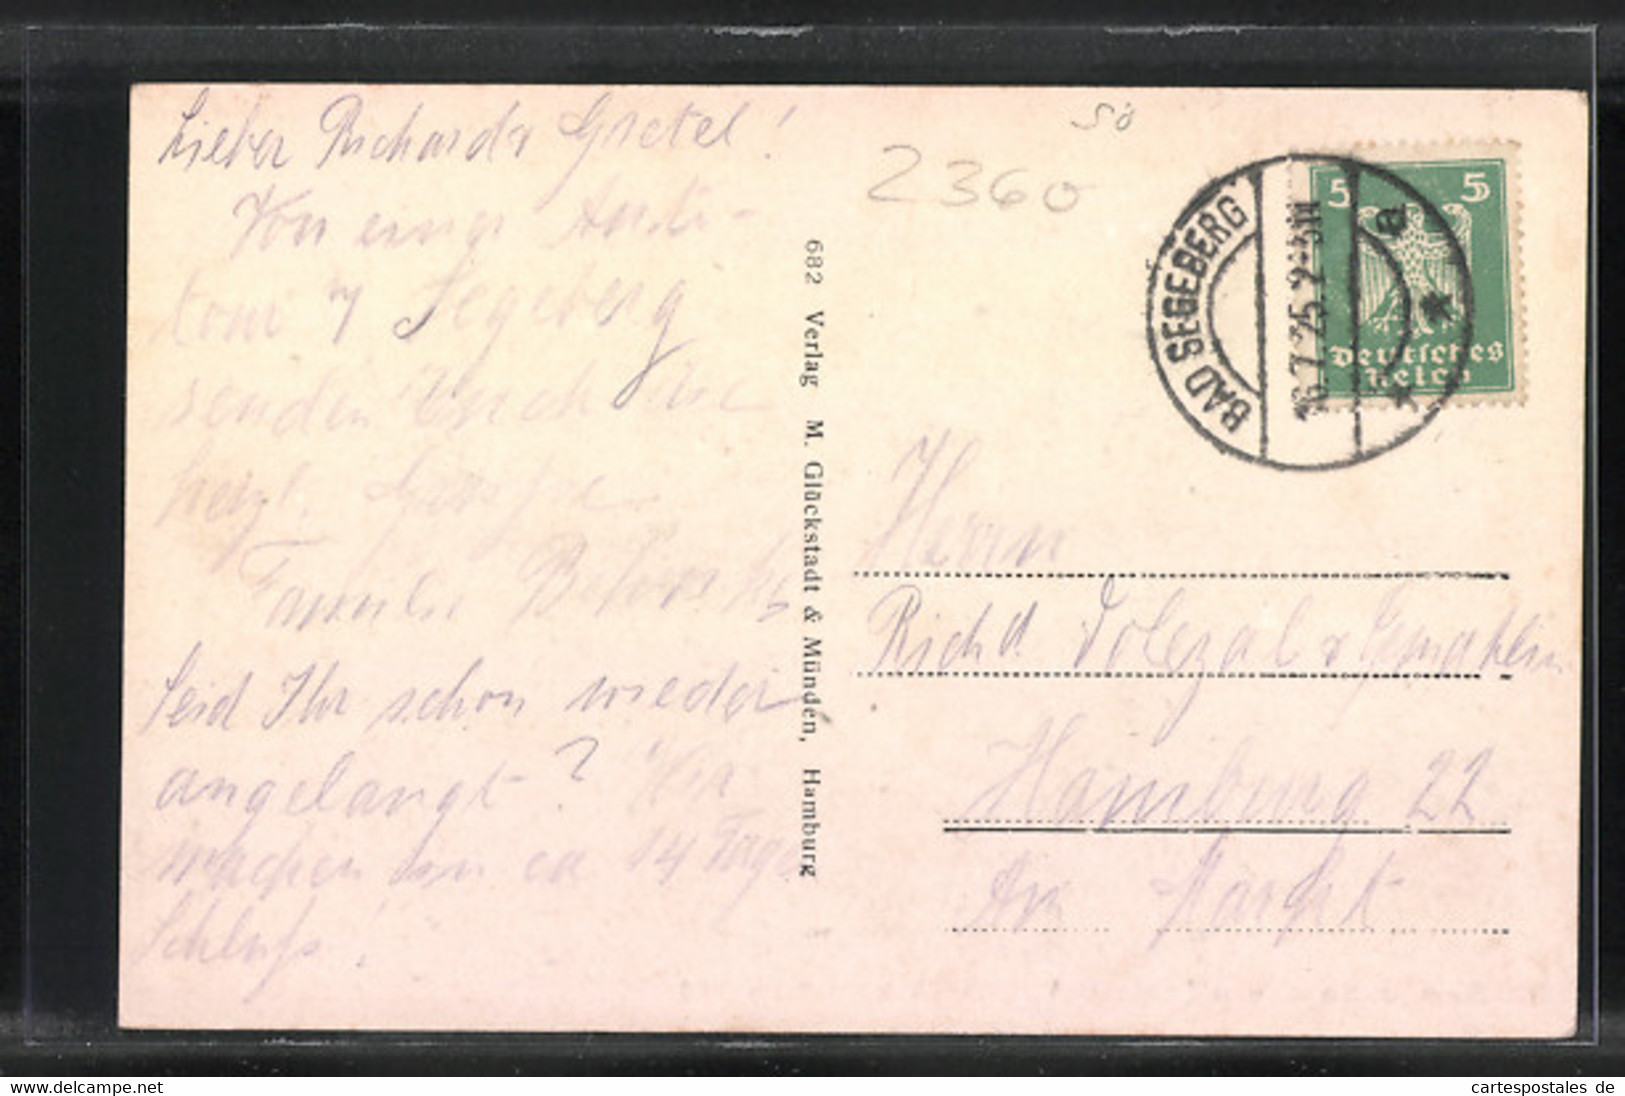 Lieber Richard & Gretel!
Von einer Auto-
tour n. Segeberg
senden Euch
herzl. Grüße
Familie
Seid Ihr schon wieder
angelangt? Wir
machen in ca 14 Tage
Schluß!
682 Verlag M. Glückstadt & Münden, Hamburg
2360
BAD SEGEBERG
16.7.25.2-3N
a
5 5
Deutsches
Reich
Herrn
Richd. Dolezal & Gemahlin
Hamburg 22
Am Markt
www.delcampe.net
cartespostales de